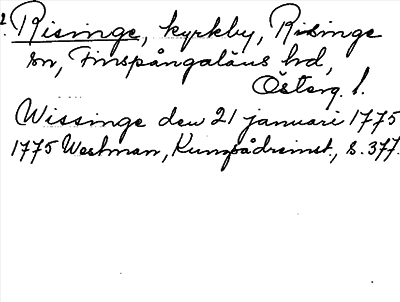 2. Risinge, kyrkby, Risinge
sn, Finspångaläns hd,
Österg. l.
Wissinge den 21 januari 1775
1775 Westman, Kungsådreinst., s. 377.